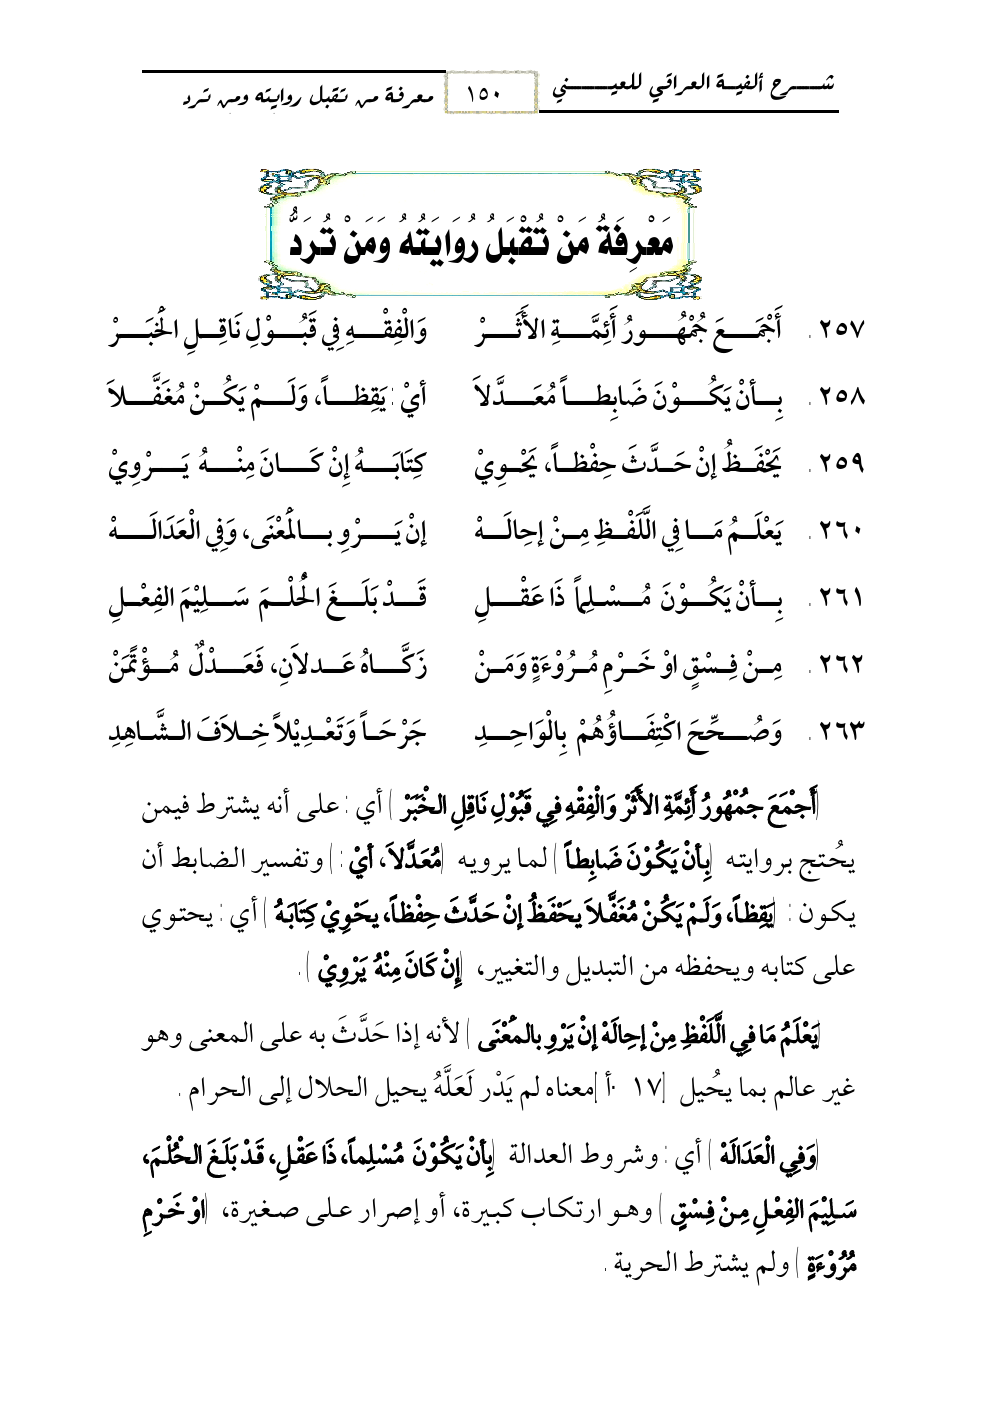 شـــرح ألفيـة العراقي للعيـــــني
١٥٠
معرفة من تقبل روايته ومن ترد
مَعْرِفَةُ مَنْ تُقْبَلُ رُوَايَتُهُ وَمَنْ تُرَدُّ
٢٥٧. أَجْمَـــعَ جُمْهُـــورُ أَئِمَّـــةِ الأَثَـــرْ وَالْفِقْـــهِ فِي قَبُـــوْلِ نَاقِـــلِ الْخَبَـــرْ
٢٥٨. بِـــأنْ يَكُـــوْنَ ضَابِطـــاً مُعَـــدَّلاَ أيْ: يَقِظـــاً، وَلَـــمْ يَكُـــنْ مُغَفَّـــلاَ
٢٥٩. يَحْفَـــظُ إنْ حَـــدَّثَ حِفْظـــاً، يَحْـــوِيْ كِتَابَـــهُ إِنْ كَـــانَ مِنْـــهُ يَـــرْوِيْ
٢٦٠. يَعْلَـــمُ مَـــا فِي اللَّفْـــظِ مِـــنْ إحِالَـــهْ إنْ يَـــرْوِ بـــالْمَعْنَى، وَفِي الْعَدَالَـــهْ
٢٦١. بِـــأنْ يَكُـــوْنَ مُـــسْلِماً ذَا عَقْـــلِ قَـــدْ بَلَـــغَ الْحُلْـــمَ سَـــلِيْمَ الفِعْـــلِ
٢٦٢. مِـــنْ فِـــسْقٍ اوْ خَـــرْمِ مُـــرُوْءَةٍ وَمَـــنْ زَكَّـــاهُ عَـــدلاَنِ، فَعَـــدْلٌ مُـــؤْتَمَنْ
٢٦٣. وَصُـــحِّحَ اكْتِفَـــاؤُهُمْ بِالْوَاحِـــدِ جَرْحَـــاً وَتَعْـــدِيْلاً خِـــلاَفَ الـــشَّاهِدِ
(أَجْمَعَ جمْهُورُ أَئِمَّةِ الأَثَرْ وَالْفِقْهِ فِي قَبُوْلِ نَاقِلِ الخْبَرْ) أي: على أنه يشترط فيمن
يحُتج بروايته (بِأنْ يَكُوْنَ ضَابِطاً) لما يرويه (مُعَدَّلاَ، أيْ:) وتفسير الضابط أن
يكون: (يَقِظاً، وَلَمْ يَكُنْ مُغَفَّلاَ يحَفَظُ إنْ حَدَّثَ حِفْظاً، يحَوِيْ كِتَابَهُ) أي: يحتوي
على كتابه ويحفظه من التبديل والتغيير، (إِنْ كَانَ مِنْهُ يَرْوِيْ).
(يَعْلَمُ مَا فِي اللَّفْظِ مِنْ إحِالَهْ إنْ يَرْوِ بالمْعْنَى) لأنه إذا حَدَّثَ به على المعنى وهو
غير عالم بما يحُيل [١٧٠أ] معناه لم يَدْر لَعَلَّهُ يحيل الحلال إلى الحرام.
(وَفِي الْعَدَالَهْ) أي: وشروط العدالة (بِأنْ يَكُوْنَ مُسْلِماً، ذَا عَقْلِ، قَدْ بَلَغَ الحُلْمَ،
سَلِيْمَ الفِعْلِ مِنْ فِسْقٍ) وهو ارتكاب كبيرة، أو إصرار على صغيرة، (اوْ خَرْمِ
مُرُوْءَةٍ) ولم يشترط الحرية.